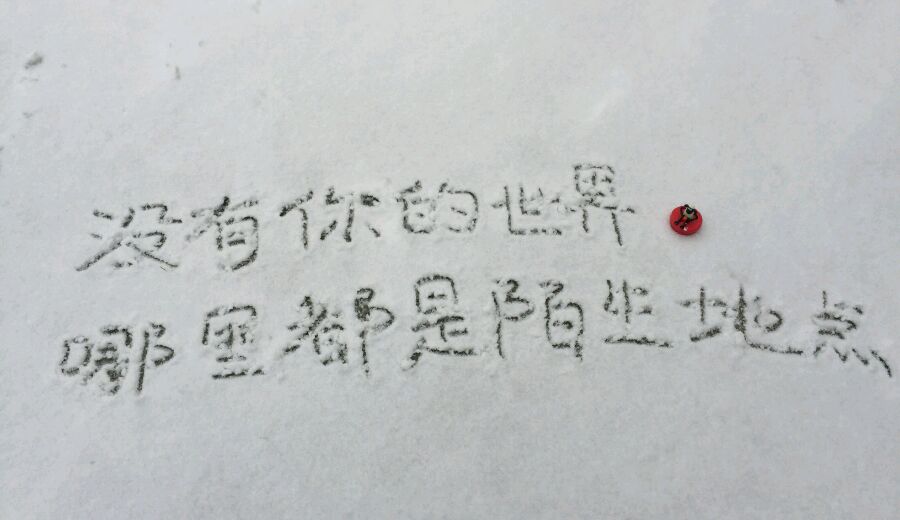 没有你的世界
哪里都是陌生地点